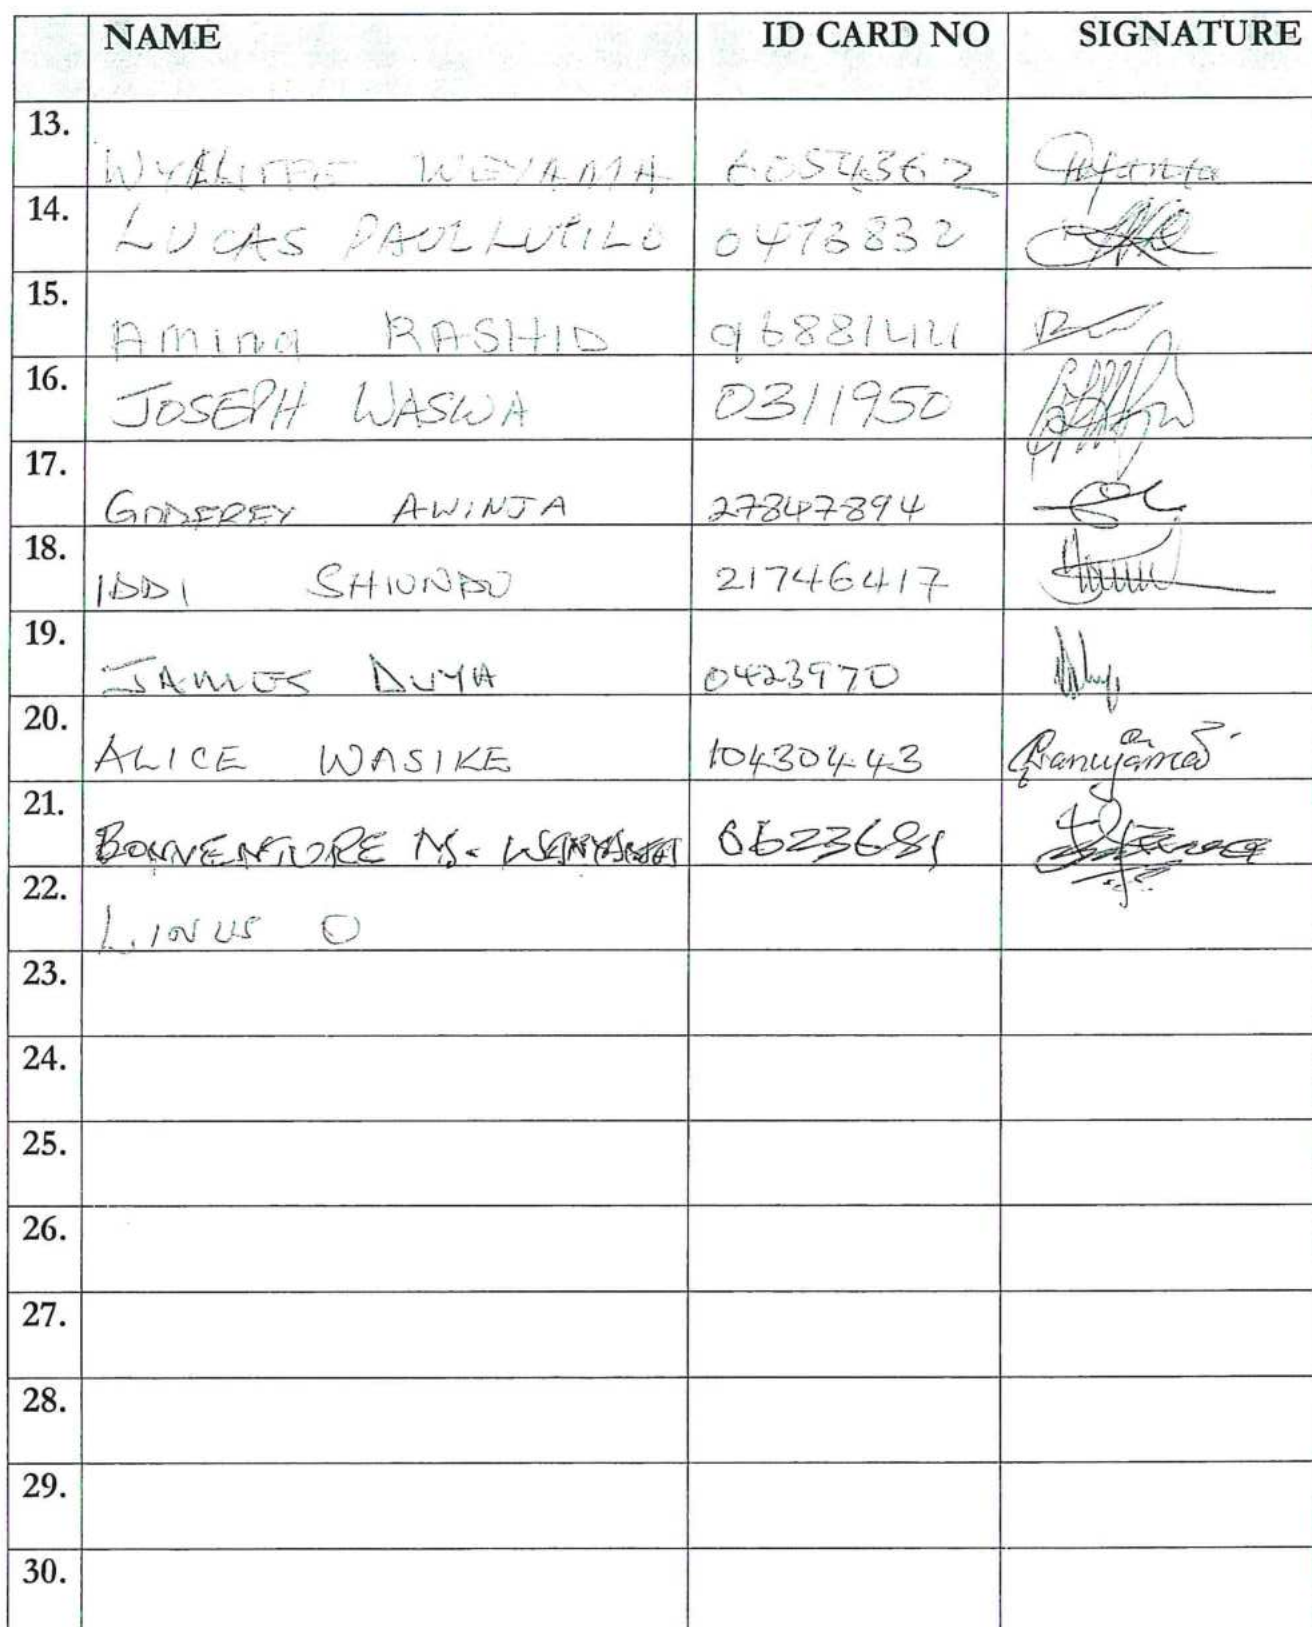 NAME ID CARD NO SIGNATURE
13. WYKLIFFE WEYAMA 6054362
14. LUCAS PAUL LUTILO 0473832
15. Amina RASHID 9688144
16. JOSEPH WASWA 0311950
17. GODEFREY AWINJA 27847894
18. IDDI SHIUNDU 21746417
19. JAMES DUYA 0423970
20. ALICE WASIKE 10430443
21. BONVENTURE M. 0623681
22. LINUS O
23.
24.
25.
26.
27.
28.
29.
30.